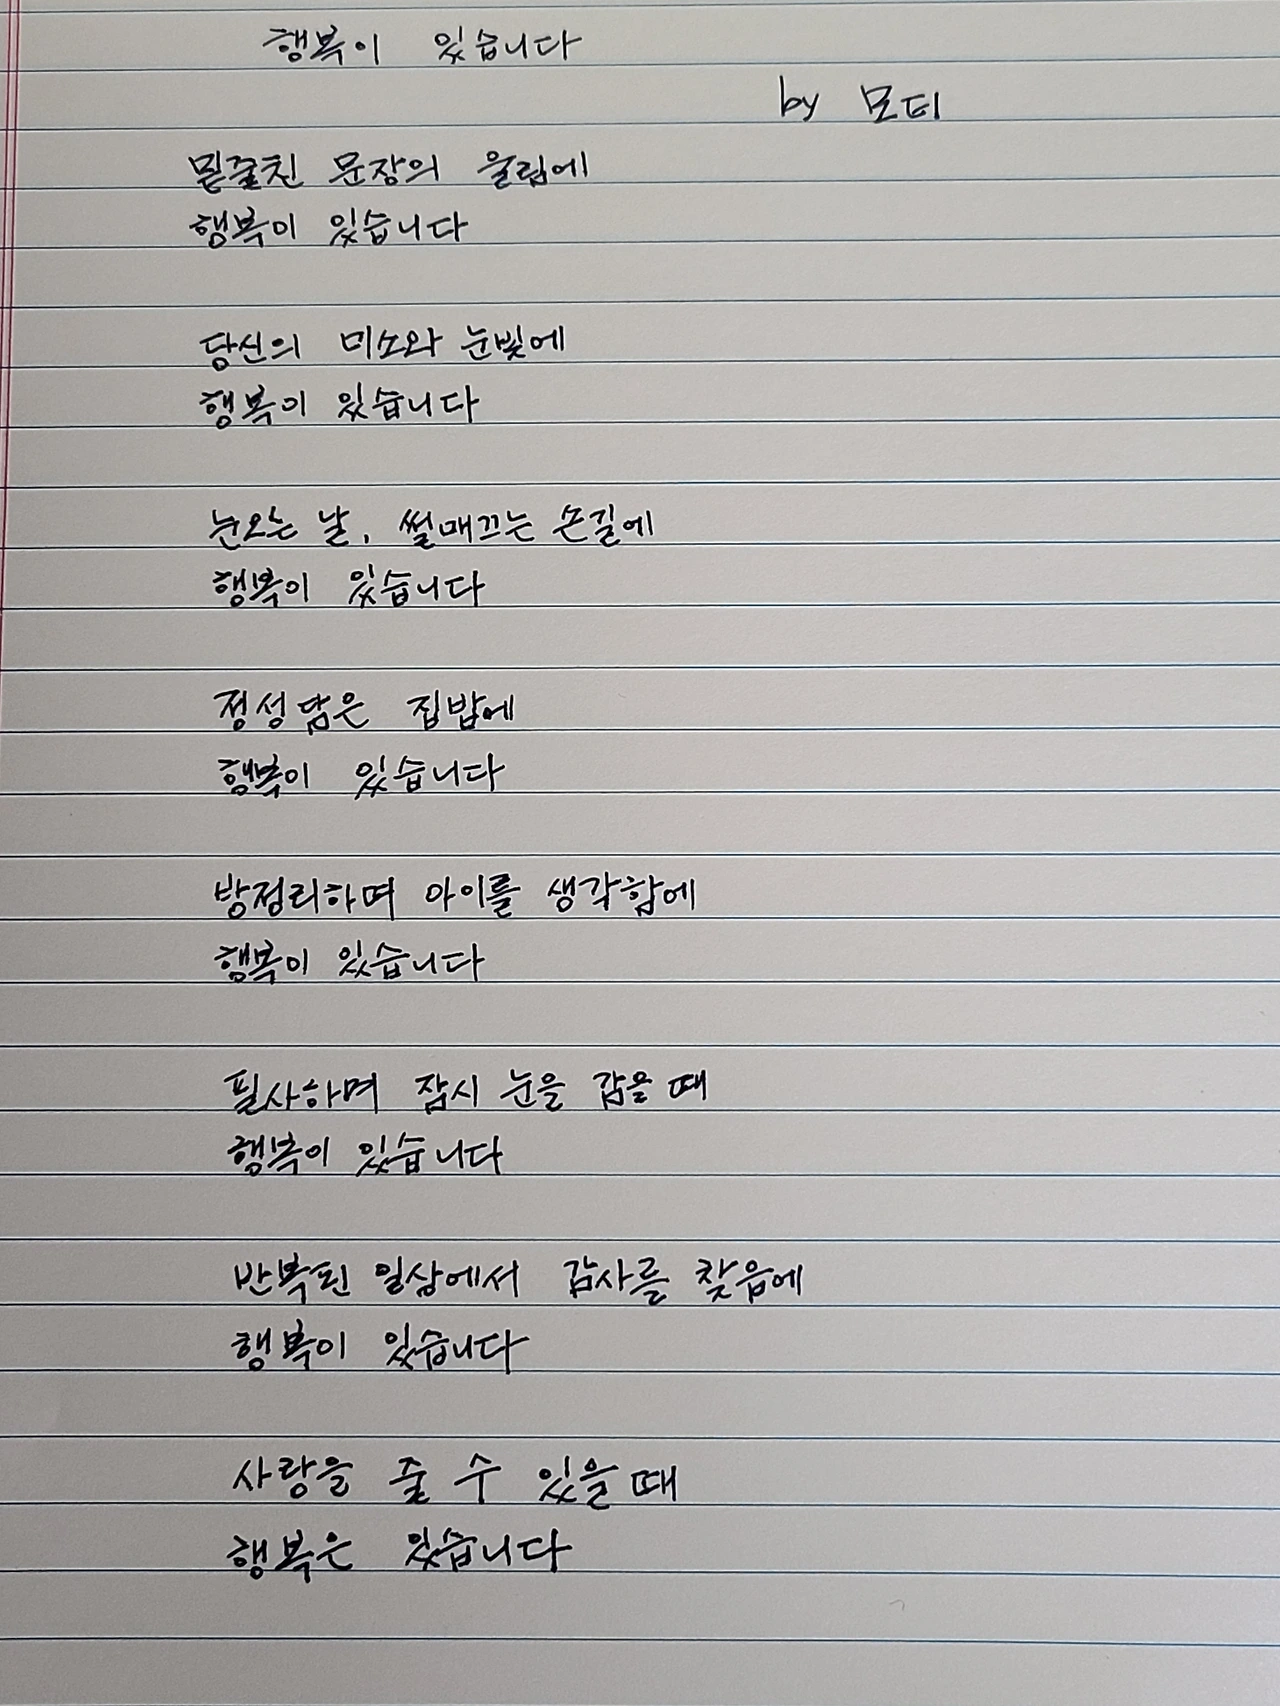 행복이 있습니다
by 모티
밑줄친 문장의 울림에
행복이 있습니다
당신의 미소와 눈빛에
행복이 있습니다
눈오는 날, 썰매끄는 손길에
행복이 있습니다
정성담은 집밥에
행복이 있습니다
방정리하며 아이를 생각함에
행복이 있습니다
필사하며 잠시 눈을 감을 때
행복이 있습니다
반복된 일상에서 감사를 찾음에
행복이 있습니다
사랑을 줄 수 있을 때
행복은 있습니다